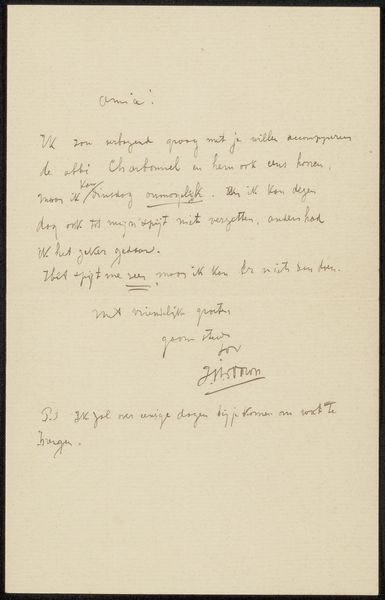 Amice!
Ik zou verbazend graag met je willen accompagneren
de abbé Charbonnel en hem ook eens hooren,
maar ik kan dinsdag onmogelijk. Ik kan dezen
dag ook tot mijn spijt niet verzetten, anders had
ik het zeker gedaan.
Het spijt me zeer, maar ik kan er niets aan doen.
Met vriendelijke groeten
gaarne steeds
P.S Ik zal over eenige dagen bij je komen om wat te
brengen.